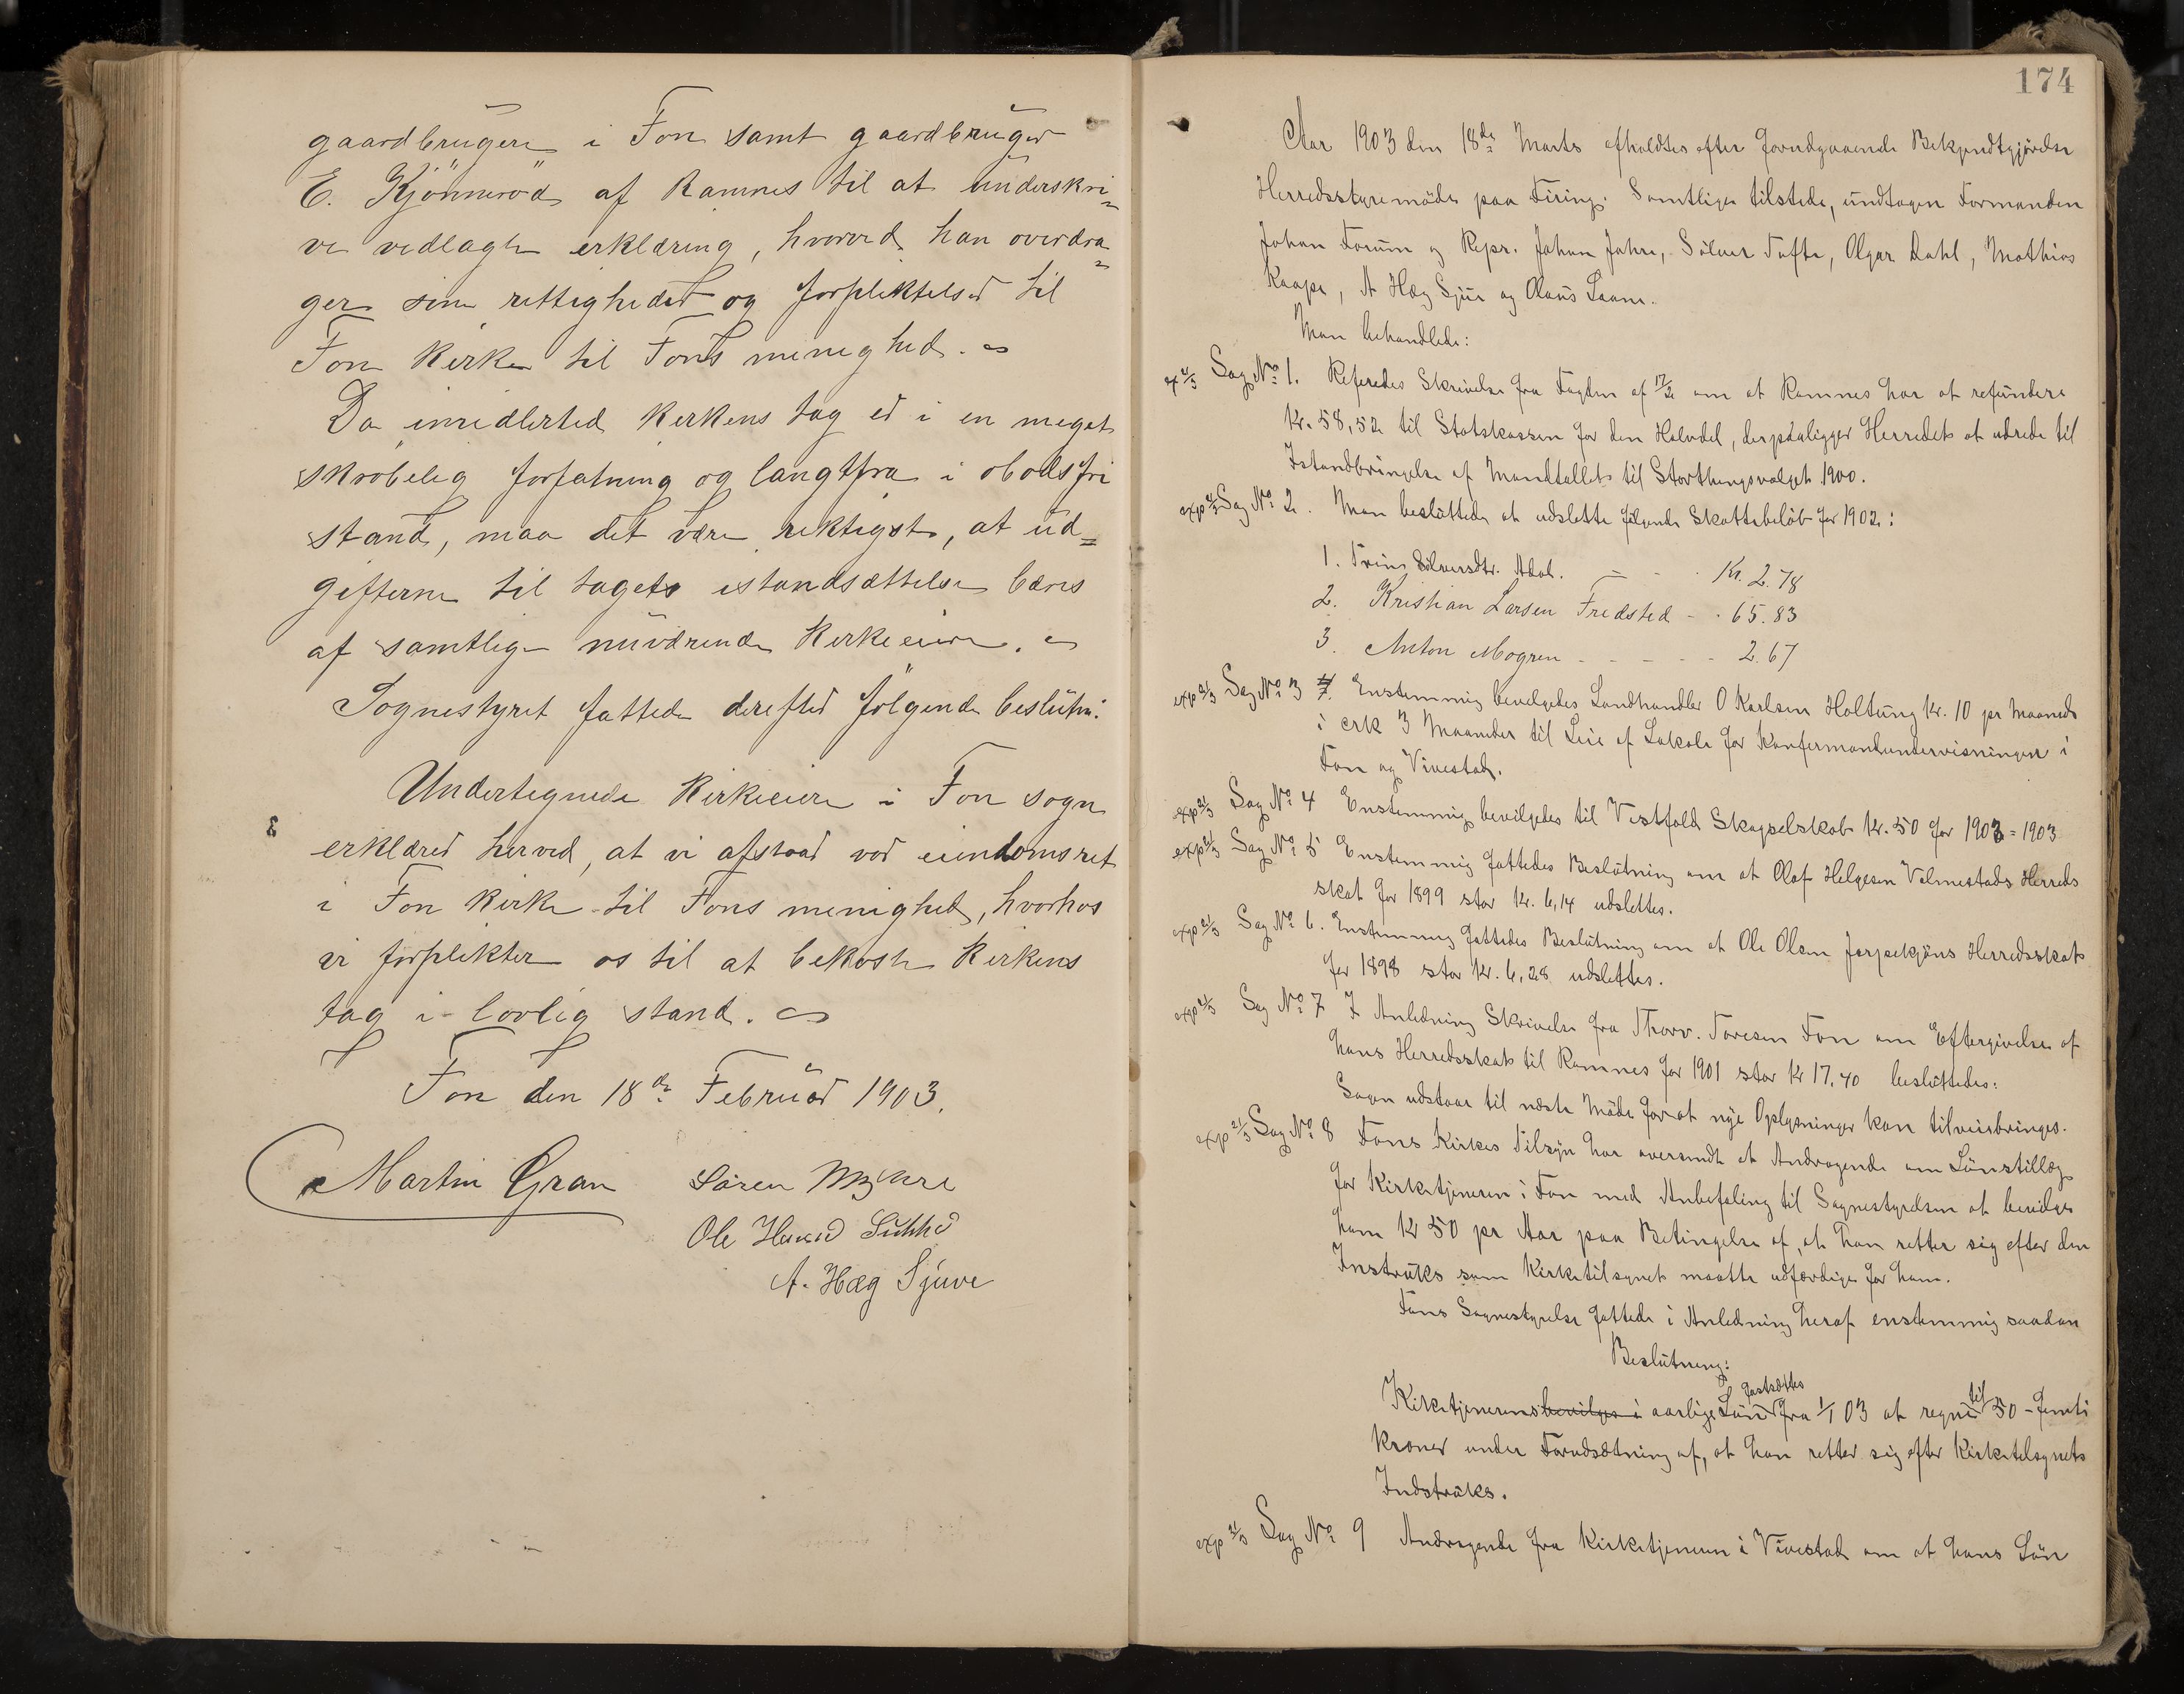 gaardbrugere i Fon samt gaardbruger
E. Kjönneröd af Ramnes til at underskri=
ve vedlagte erklæring, hvorved han overdra=
ger sine rettigheder og forpliktelser til
Fon kirke til Fons menighed.
Da imidlertid kirkens tag er i en meget
skröbelig forfatning og langtfra i abodsfri
stand, maa det være riktigst, at ud=
gifterne til tagets istandsættelse bæres
af samtlige nuværende kirkeeiere.
Sognestyret fattede derefter fölgende beslutn:
Undertegnede kirkeeiere i Fon sogn
erklærer herved, at vi afstaar vor eiendomsret
i Fon kirke til Fons menighed, hvorhos
vi forplikter os til at bekoste kirkens
tag i lovlig stand.
Fon den 18de Februar 1903.
Martin Gran Sören
Ole
A. Hæg Sjuve
174
Aar 1903 den 18de Marts afholdtes efter forudgaaende Bekjendtgjörelse
Herredsstyremöde paa Firing. Samtlige tilstede, undtagen Formanden
Johan Forum og Repr. Johan Jahre, Sölver Tufte, Olger Dahl, Mathias
Kaape, A Hæg Sjue og Olaus Laane.
Man behandlede:
Sag No 1. Referedes Skrivelse fra Fogden af 17/2 om at Ramnes har at refundere
Kr. 58,52 til Statskassen for den Halvdel, derpaaligger Herredet at udrede til
Istandbringelse af Mandtallet til Storthingsvalget 1900.
exp 21/3 Sag No 2. Man besluttede at udslette fölgende Skattebelöb for 1902:
1. Trine Sölversdtr. Adal. - - Kr. 2.78
2. Kristian Larsen Fredsted - . 65.83
3. Anton Mogren - - - - - 2.67
exp 21/3 Sag No 3 Enstemmig bevilgedes Landhandler O Karlsen Holtung Kr. 10 pr Maaned
i cirk 3 Maaneder til Leie af Lokale for Konfermandundervisningen i
Fon og Vivestad.
exp 21/3 Sag No 4 Enstemmig bevilgedes til Vestfold Skogselskab Kr. 50 for 1902 = 1903
exp 21/3 Sag No 5 Enstemmig fattedes Beslutning om at Olaf Helgesen Valmestads Herreds
skat for 1899 stor Kr. 6,14 udslettes.
exp 21/3 Sag No 6. Enstemmig fattedes Beslutning om at Ole Olsen Jarpekjöns Herredsskat
for 1898 stor Kr. 6,28 udslettes.
exp 21/3 Sag No 7 I Anledning Skrivelse fra Thorv. Toresen Fon om Eftergivelse af
hans Herredsskat til Ramnes for 1901 stor Kr 17,40 besluttedes:
Sagen udstaar til næste Möde forat nye Oplysninger kan tilveiebringes.
exp 21/3 Sag No 8 Fons Kirkes Tilsyn har oversendt et Andragende om Löntillæg
for Kirketjeneren i Fon med Anbefaling til Sognestyrelsen at bevilge
ham Kr 50 pr Aar paa Betingelse af, at han retter sig efter den
Instruks som Kirketilsynet maatte udfærdige for ham.
Fons Sognestyrelse fattede i Anledning heraf enstemmig saadan
Beslutning:
Kirketjenerens bevilges i aarlige Lön fastsættes fra 1/1 03 at regne til 50 - femti
kroner under Forudsætning af, at han retter sig efter Kirketilsynets
Indstruks.
exp 21/3 Sag No 9 Andragende fra Kirketjeneren i Vivestad om at hans Lön